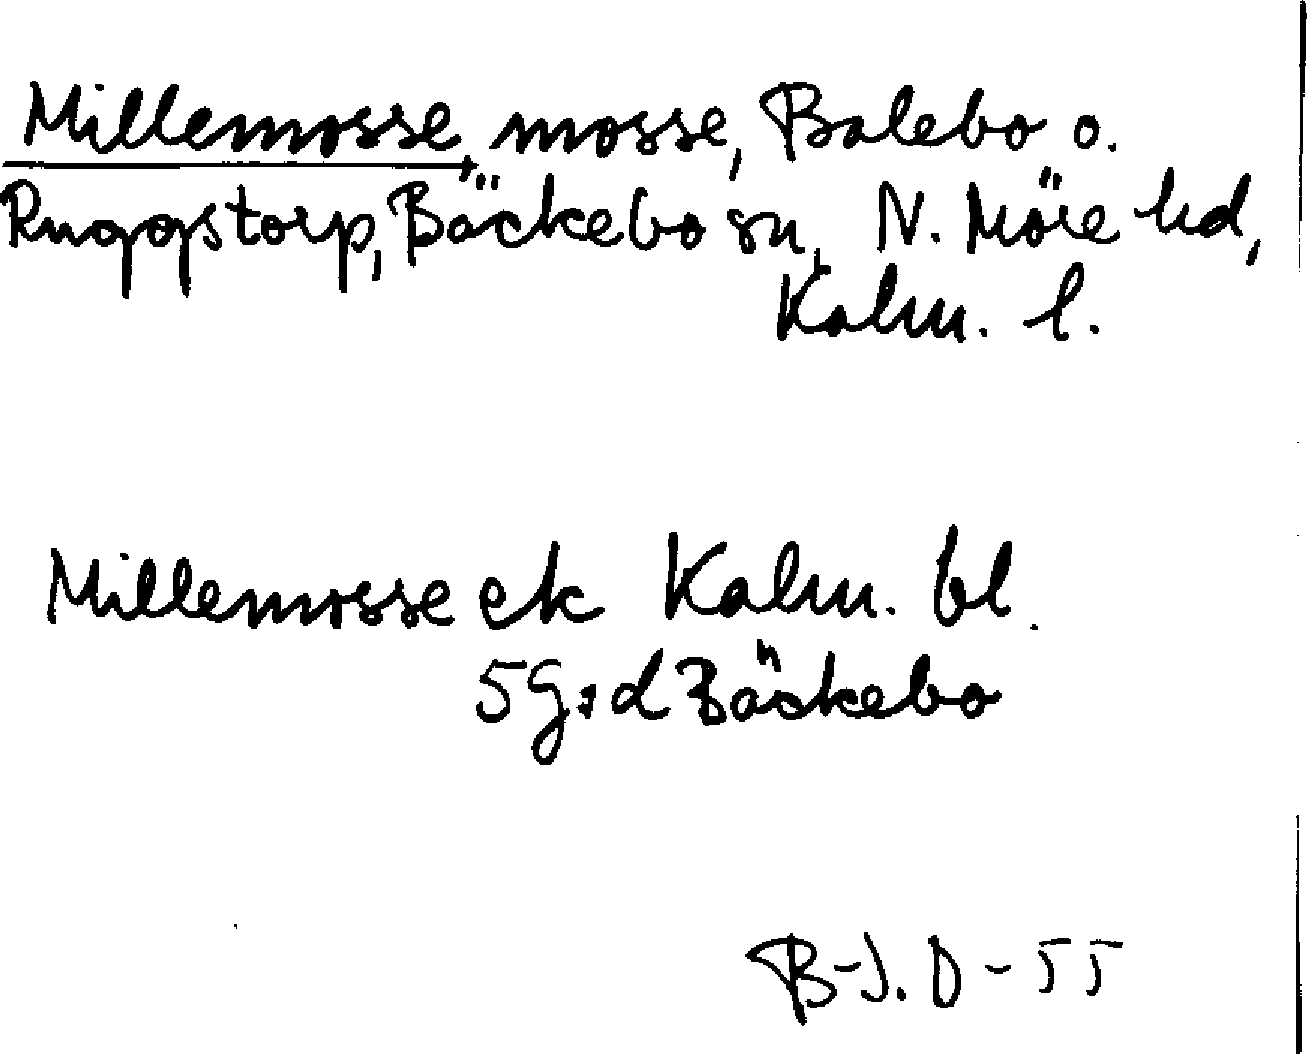 Millemosse, mosse, Balebo o.
Ruggstorp, Bäckebo sn, N. Möre hd,
Kalm. l.
Millemosse ek Kalm. bl.
5G:d Bäckebo
B-J. D - 55